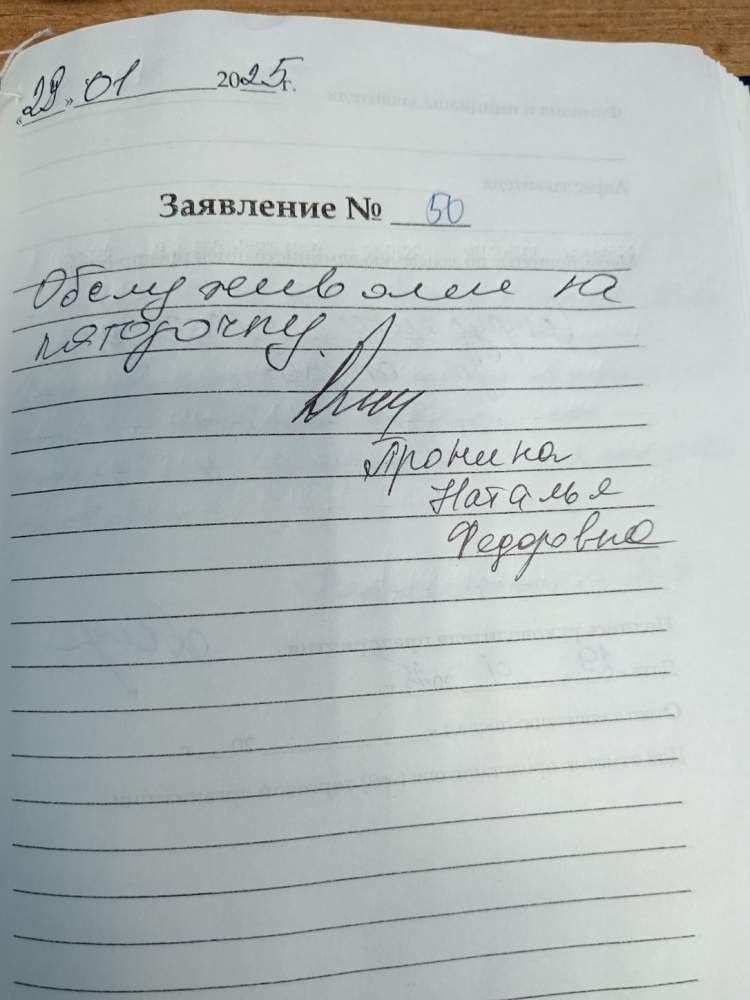 «29» 01 2025г.
Заявление № 50
Обслуживали на
пяторочку.
Пронина
Наталья
Федоровна